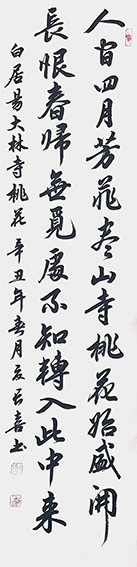 人间四月芳菲尽山寺桃花始盛開
長恨春歸無覓處不知轉入此中来
白居易大林寺桃花 辛丑年春月